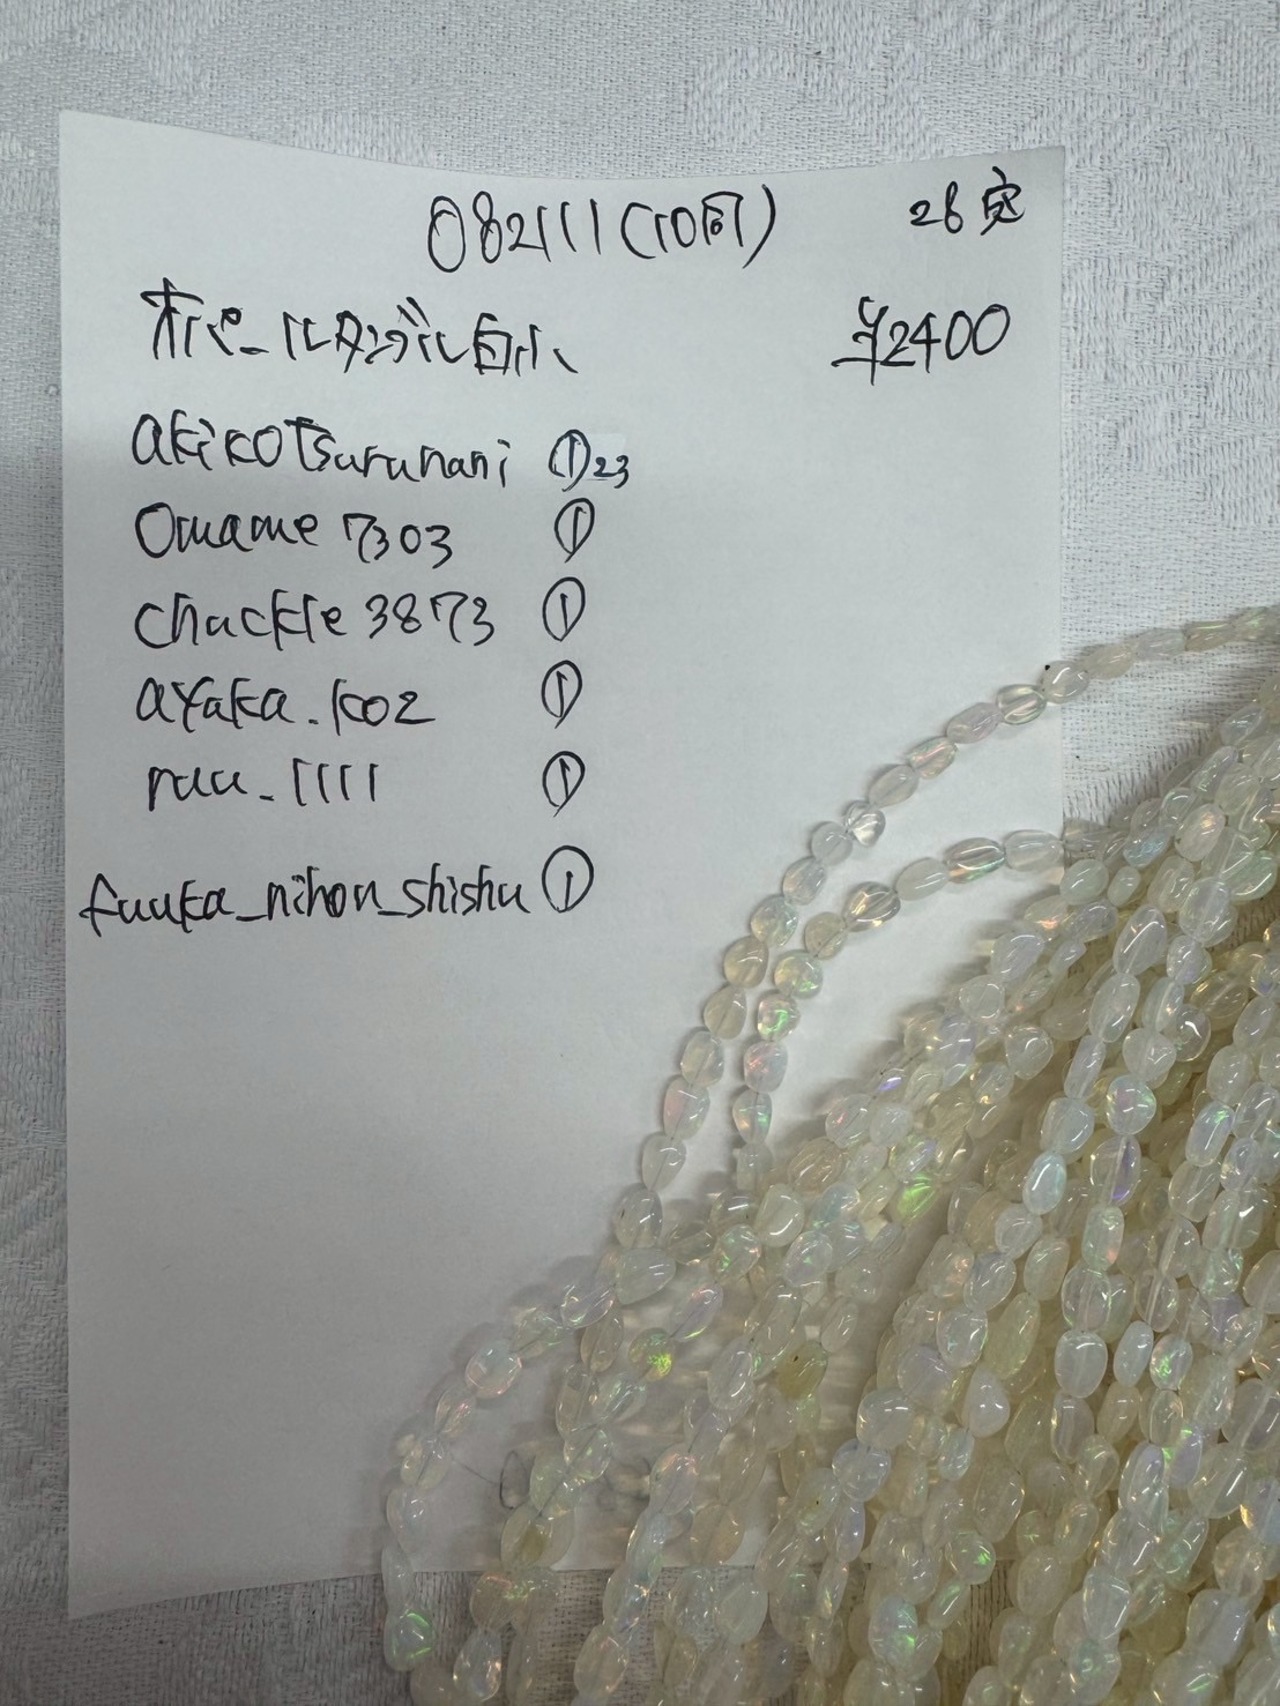 082111(10同) 28定
オパールタンブル白小 ¥2400
akikotsurunani ①23
Omame7303 ①
chackle3873 ①
ayaka.k02 ①
ruu_1111 ①
fuuka_nihon_shishu ①